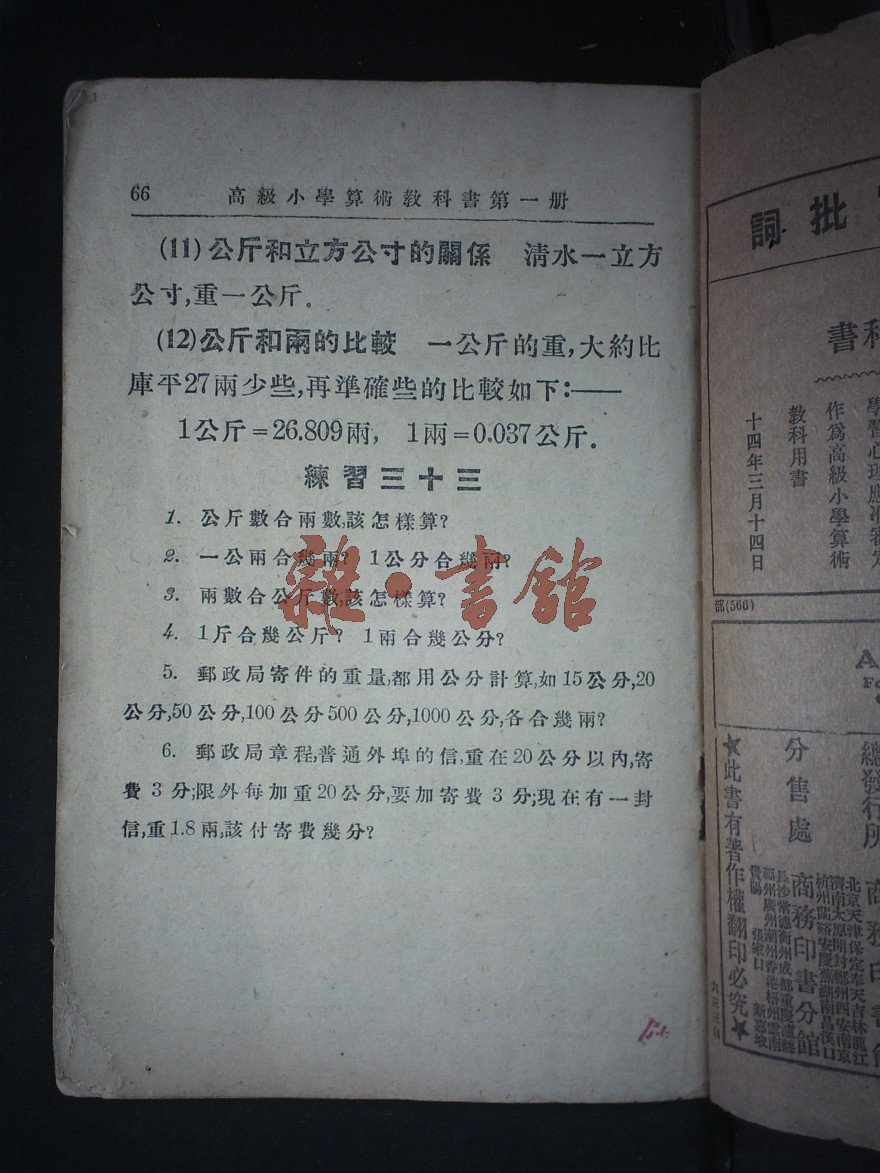 66 高級小學算術教科書第一册
(11)公斤和立方公寸的關係 清水一立方
公寸,重一公斤.
(12)公斤和兩的比較 一公斤的重,大約比
庫平27兩少些,再準確些的比較如下:——
1公斤=26.809兩, 1兩=0.037公斤.
練習三十三
1. 公斤數合兩數,該怎樣算?
2. 一公兩合幾兩? 1公分合幾兩?
3. 兩數合公斤數,該怎樣算?
4. 1斤合幾公斤? 1兩合幾公分?
5. 郵政局寄件的重量,都用公分計算,如15公分,20
公分,50公分,100公分500公分,1000公分,各合幾兩?
6. 郵政局章程,普通外埠的信,重在20公分以內,寄
費3分;限外每加重20公分,要加寄費3分;現在有一封
信,重1.8兩,該付寄費幾分?
雜·書館
批詞
科書
作爲高級小學算術
教科用書
十四年三月十四日
部(566)
總發行所
分售處
商務印書分館
★此書有著作權翻印必究★